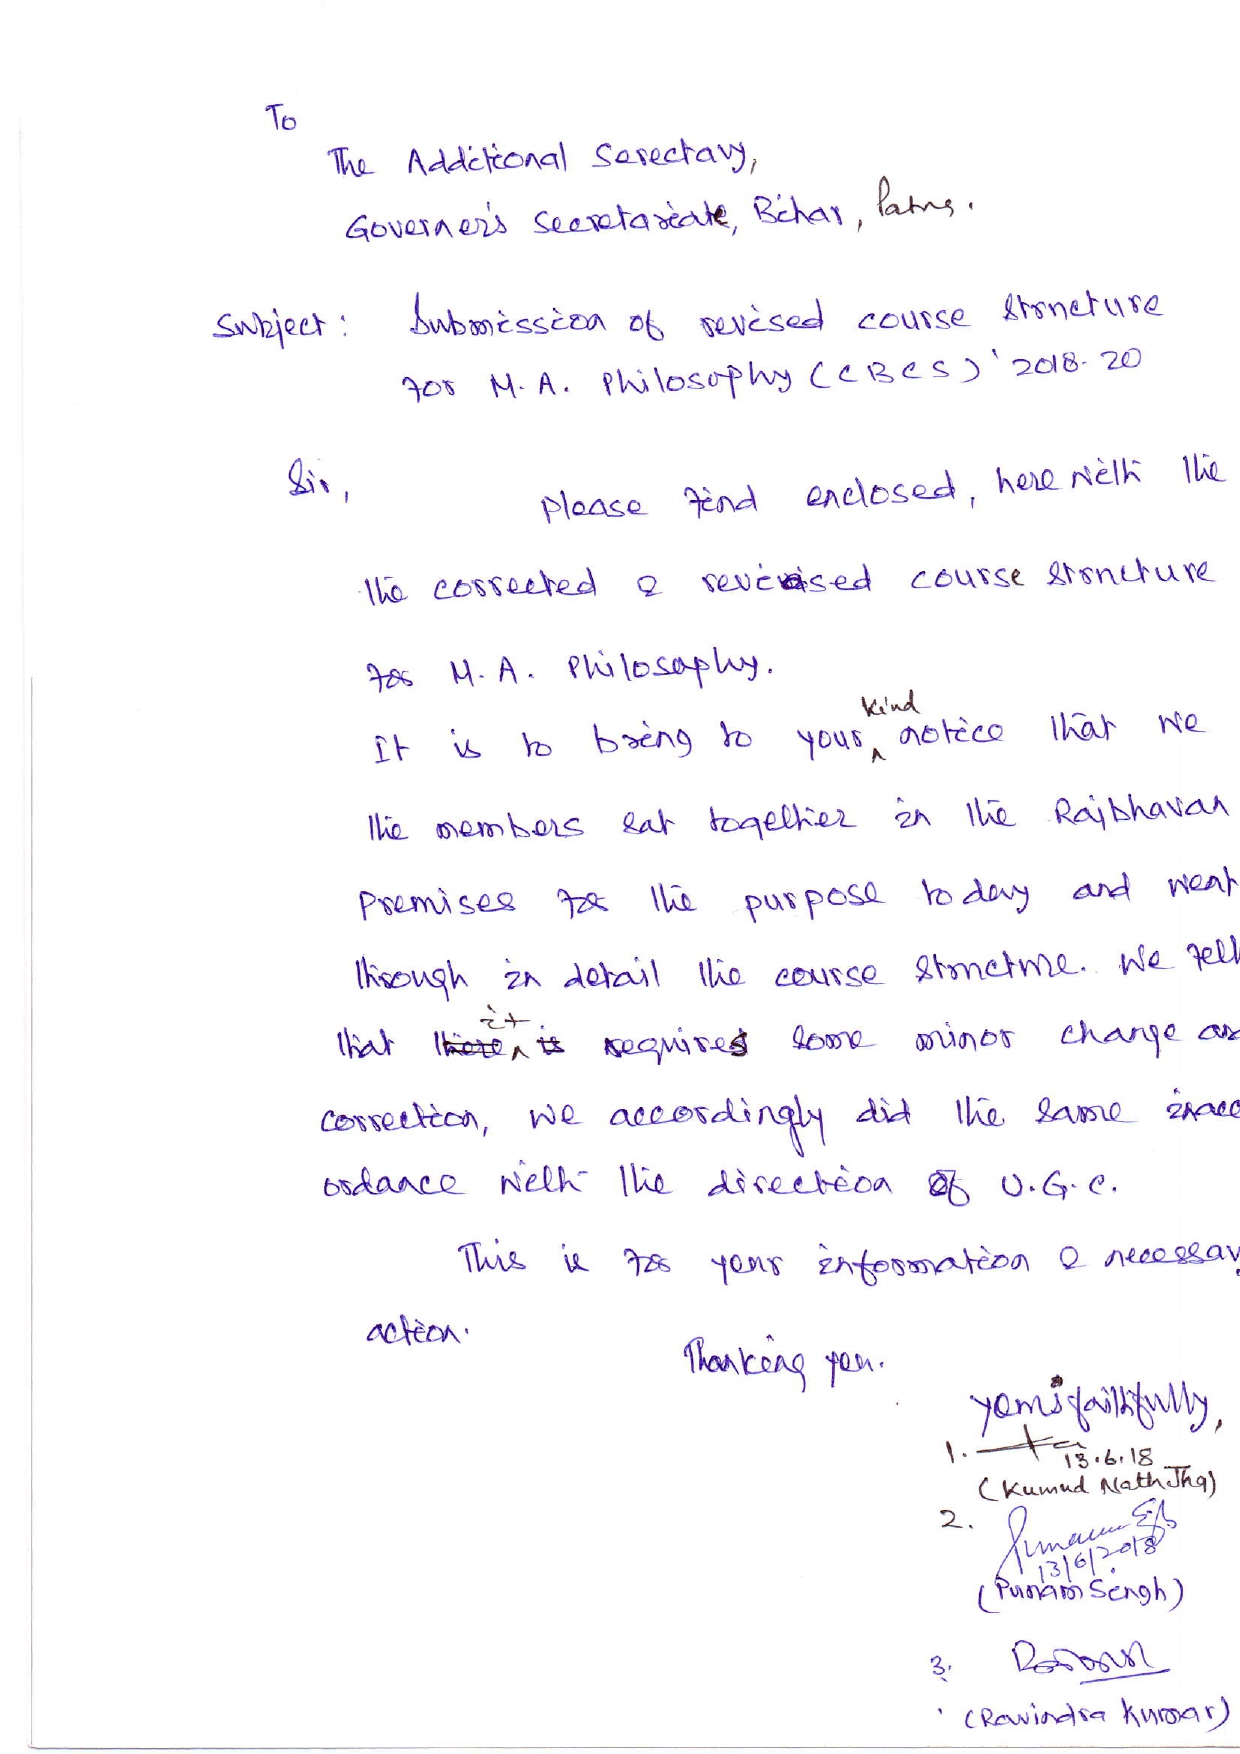 To
The Additional Serectary,
Governer's Secretariate, Bihar, Patna.
Subject: Submission of revised course structure
for M.A. Philosophy (CBCS) ' 2018-20
Sir,
please find enclosed, here with the
the corrected & revised course structure
for M.A. Philosophy.
It is to bring to your kind notice that we
the members sat together in the Rajbhavan
premises for the purpose today and went
through in detail the course structure. We felt
that it requires some minor change an
correction, we accordingly did the same inacc
ordance with the direction of U.G.C.
This is for your information & necessary
action.
Thanking you.
yours faithfully,
1.
13.6.18
(Kumud Nath Jha)
2.
13/6/2018
(Punam Singh)
3.
(Ravindra Kumar)